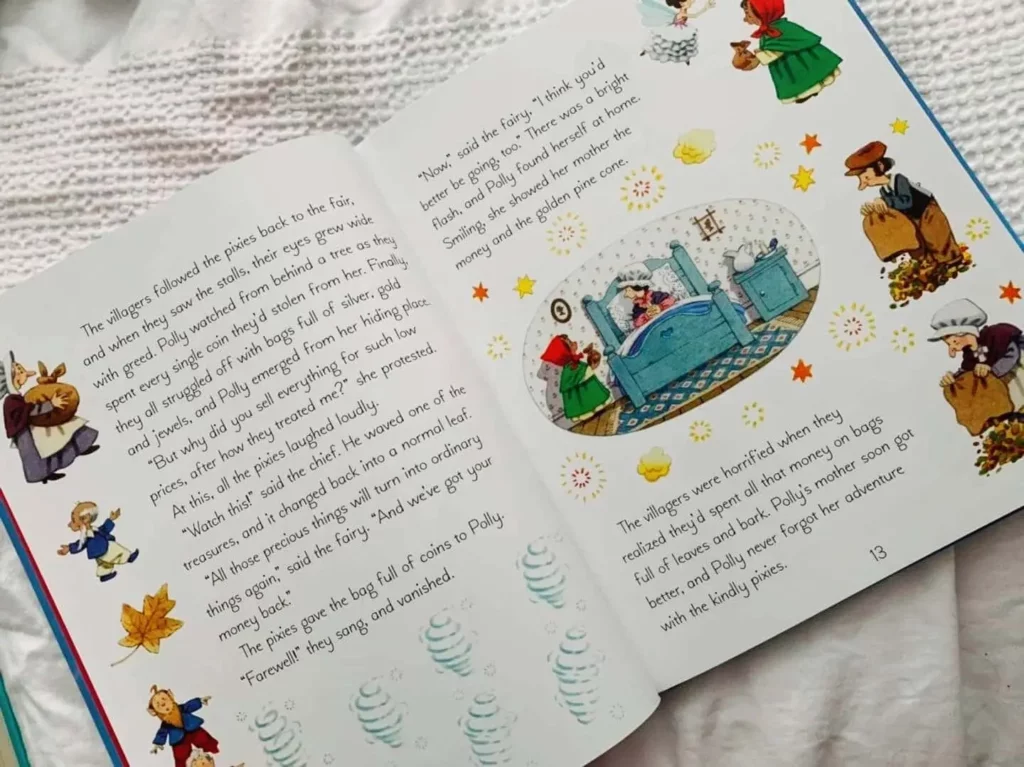 The villagers followed the pixies back to the fair,
and when they saw the stalls, their eyes grew wide
with greed. Polly watched from behind a tree as they
spent every single coin they'd stolen from her. Finally,
they all struggled off with bags full of silver, gold
and jewels, and Polly emerged from her hiding place.
"But why did you sell everything for such low
prices, after how they treated me?" she protested.
At this, all the pixies laughed loudly.
"Watch this!" said the chief. He waved one of the
treasures, and it changed back into a normal leaf.
"All those precious things will turn into ordinary
things again," said the fairy. "And we've got your
money back."
The pixies gave the bag full of coins to Polly.
"Farewell!" they sang, and vanished.
"Now," said the fairy, "I think you'd
better be going, too." There was a bright
flash, and Polly found herself at home.
Smiling, she showed her mother the
money and the golden pine cone.
The villagers were horrified when they
realized they'd spent all that money on bags
full of leaves and bark. Polly's mother soon got
better, and Polly never forgot her adventure
with the kindly pixies.
13